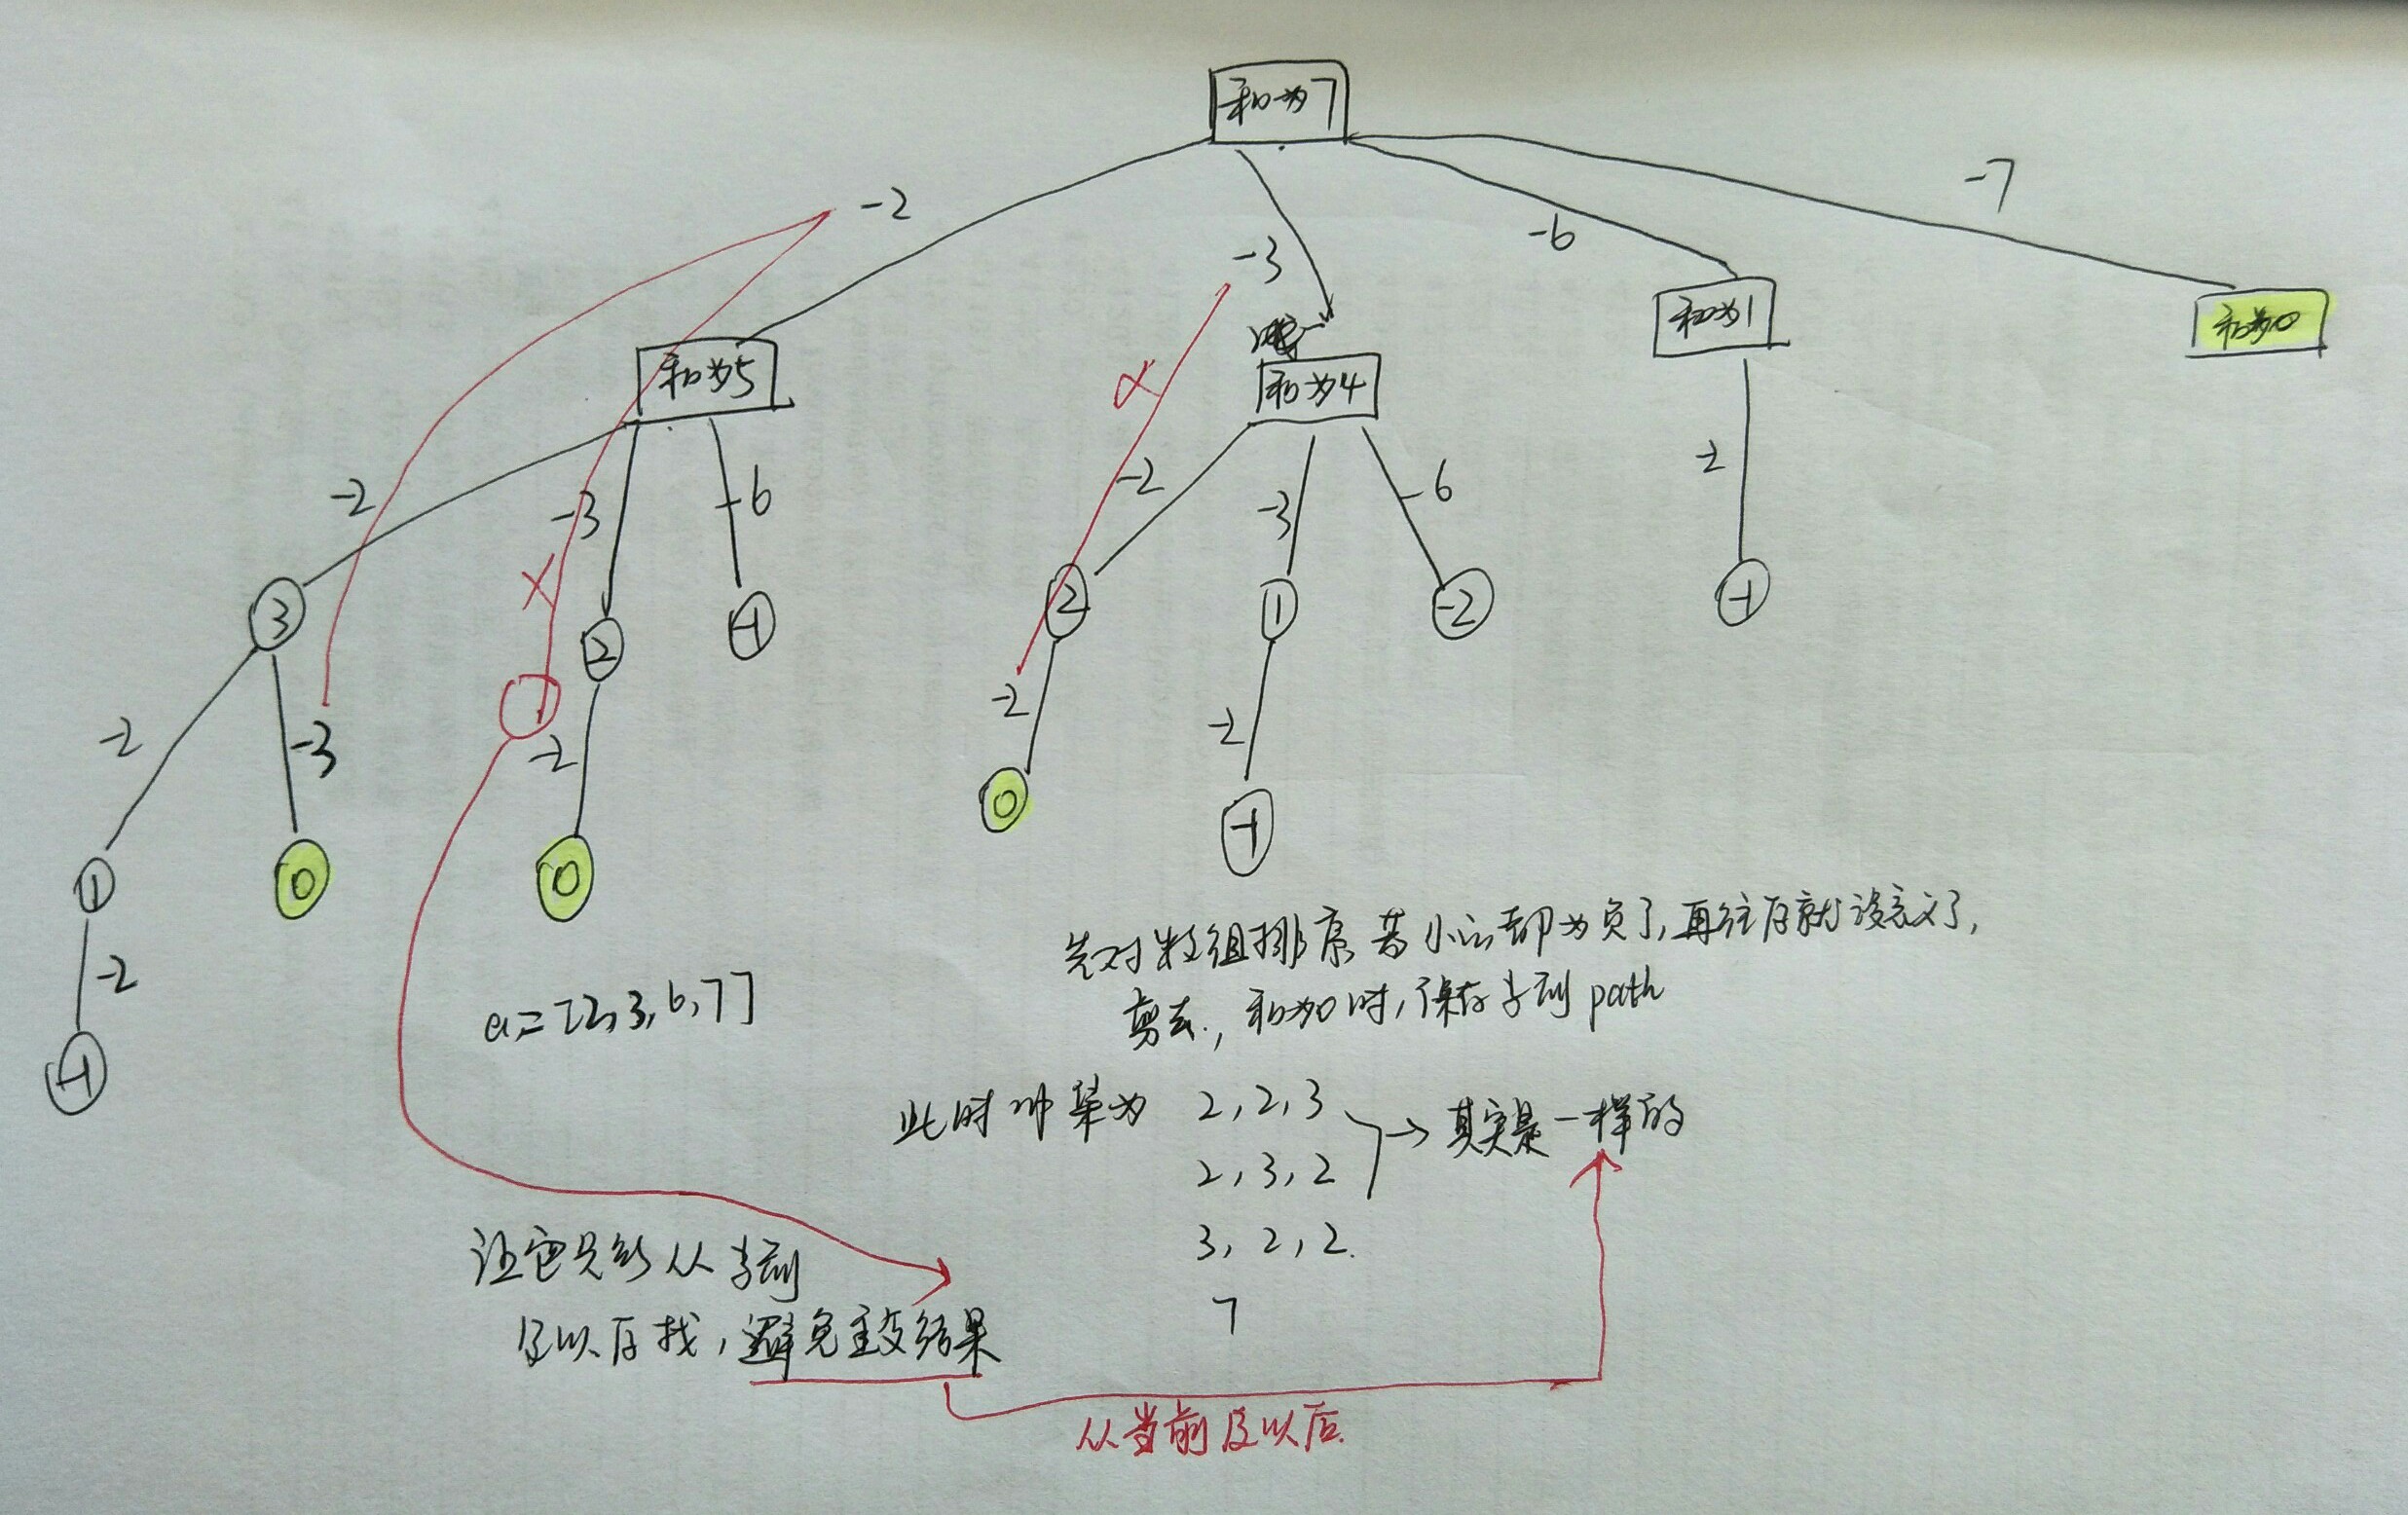 和为7
-2
-3
-6
-7
和为5
和为4
和为1
和为0
-2
-3
-6
-2
-3
-6
-2
3
2
-1
2
1
-2
-1
-2
-3
-2
-2
-2
1
0
0
0
-1
-2
-1
a=[2,3,6,7]
先对数组排序 若小的都为负了,再往后就没意义了,
剪去., 和为0时,保存当前path
此时 为 2,2,3 → 其实是一样的
2,3,2
3,2,2.
7
让它只能从当前
及以后找,避免重复结果
从当前及以后.